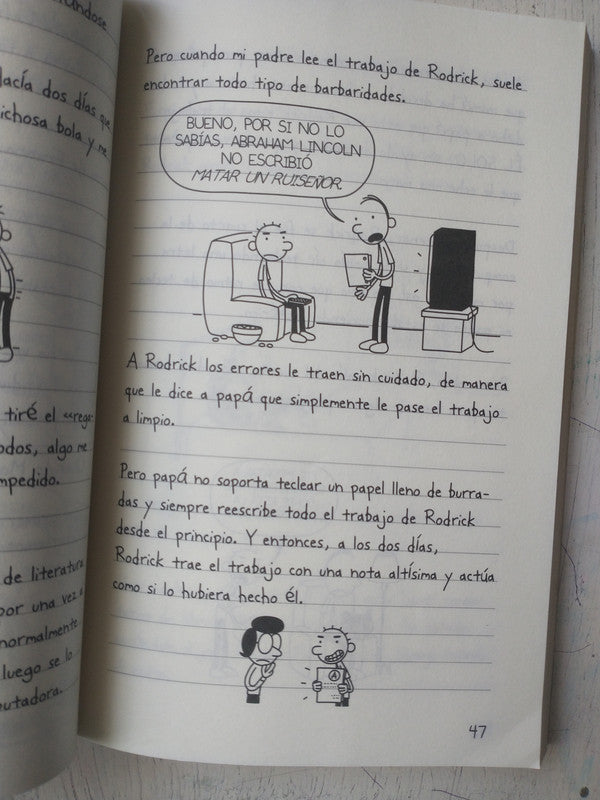 hacía dos días que
dichosa bola y me
tiré el
algo me
de literatura
por una vez
normalmente
luego se lo
Pero cuando mi padre lee el trabajo de Rodrick, suele
encontrar todo tipo de barbaridades.
BUENO, POR SI NO LO
SABÍAS, ABRAHAM LINCOLN
NO ESCRIBIÓ
MATAR UN RUISEÑOR.
A Rodrick los errores le traen sin cuidado, de manera
que le dice a papá que simplemente le pase el trabajo
a limpio.
Pero papá no soporta teclear un papel lleno de burra-
das y siempre reescribe todo el trabajo de Rodrick
desde el principio. Y entonces, a los dos días,
Rodrick trae el trabajo con una nota altísima y actúa
como si lo hubiera hecho él.
A
47